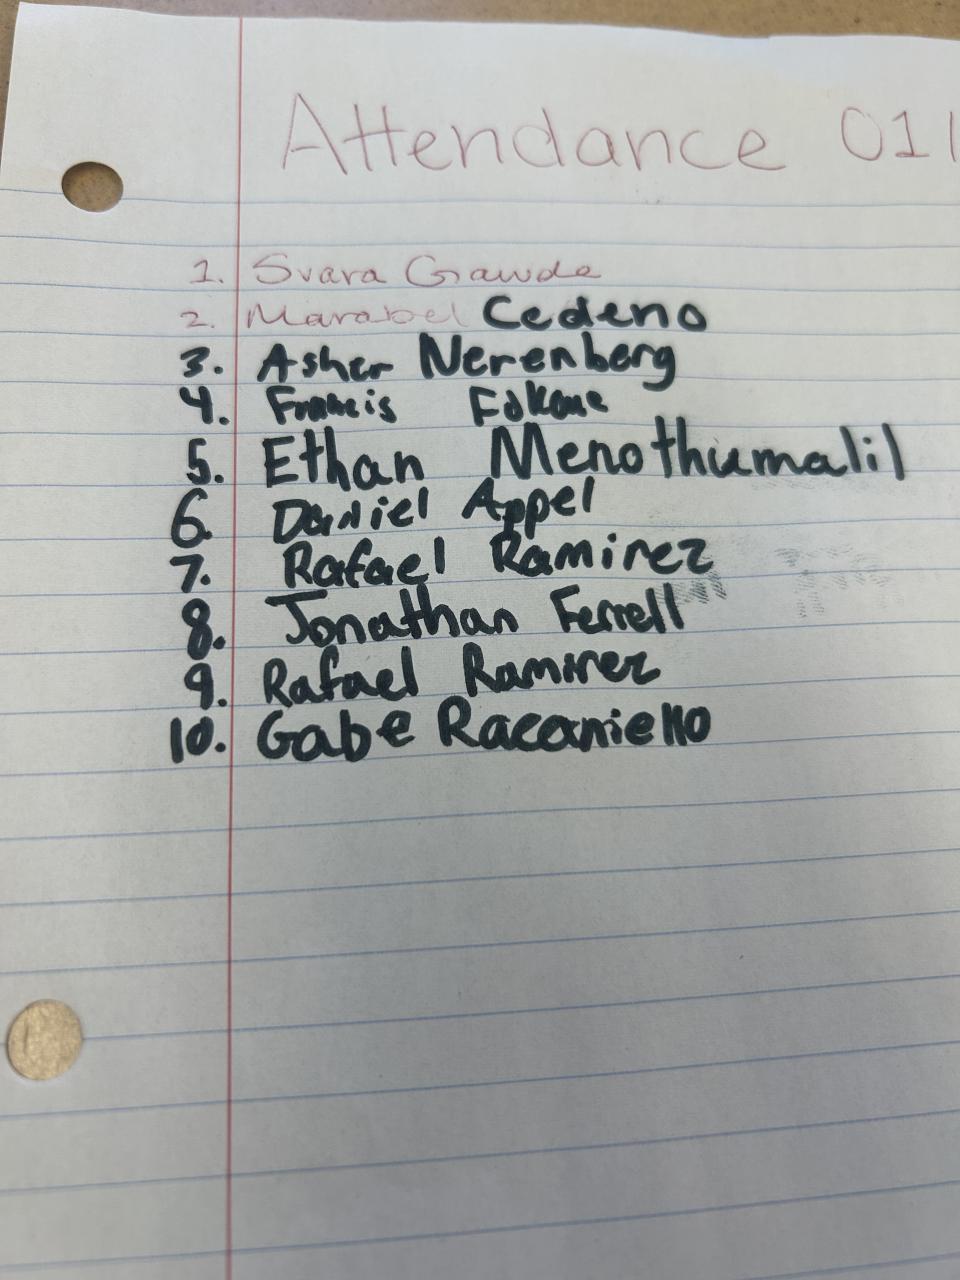 Attendance 011
1. Svara Gawde
2. Marabel Cedeno
3. Asher Nerenberg
4. Francis
5. Ethan Menothumalil
6. Daniel Appel
7. Rafael Ramirez
8. Jonathan Ferrell
9. Rafael Ramirez
10. Gabe Racaniello